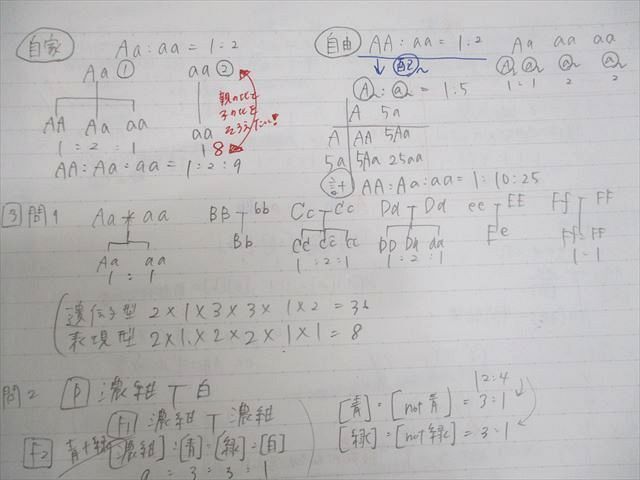 自家
Aa:aa = 1:2
Aa ① aa ②
AA Aa aa
1 : 2 : 1
aa
8
親の比と
子の比を
そろえたい!
AA:Aa:aa = 1:2:9
自由
AA:aa = 1:2
Aa aa aa
A a a a
1 : 1 2 2
A : a = 1:5
A 5a
A AA 5Aa
5a 5Aa 25aa
計 AA:Aa:aa = 1:10:25
3 問1
Aa × aa
Aa aa
1 : 1
BB bb
Bb
Cc Cc
CC Cc cc
1 : 2 : 1
Dd Dd
DD Dd dd
1 : 2 : 1
ee EE
Ee
Ff FF
Ff FF
1 : 1
遺伝子型 2×1×3×3×1×2 = 36
表現型 2×1×2×2×1×1 = 8
問2 P 濃紺 白
F1 濃紺 濃紺
F2 青+緑 [濃紺]:[青]:[緑]:[白]
9 : 3 : 3 : 1
12:4
[青]:[not青] = 3:1
[緑]:[not緑] = 3:1